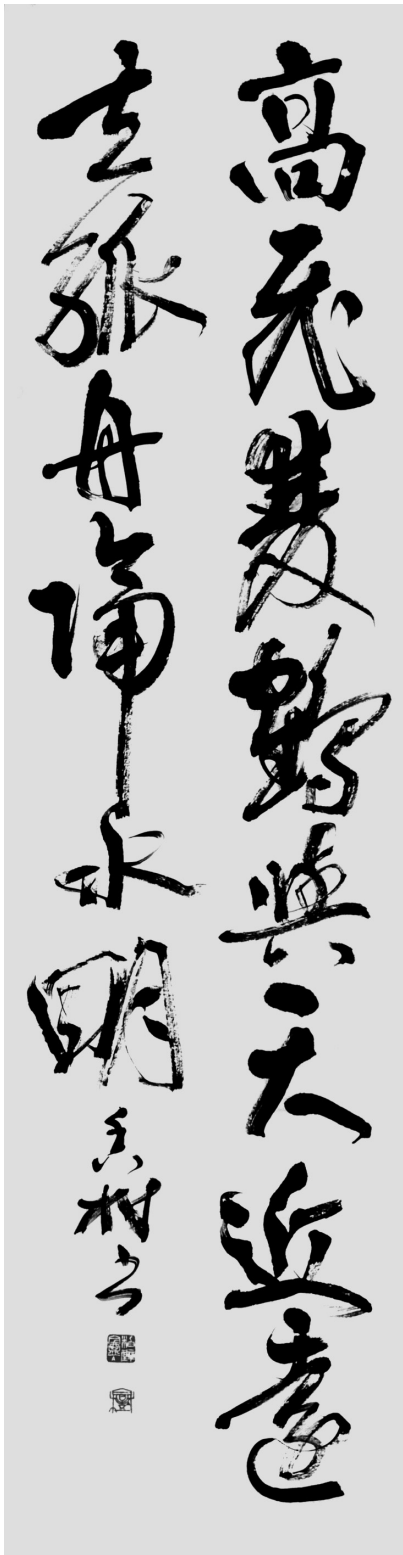 高飛雙鶴與天近遠
去孤舟隔水明
香村书